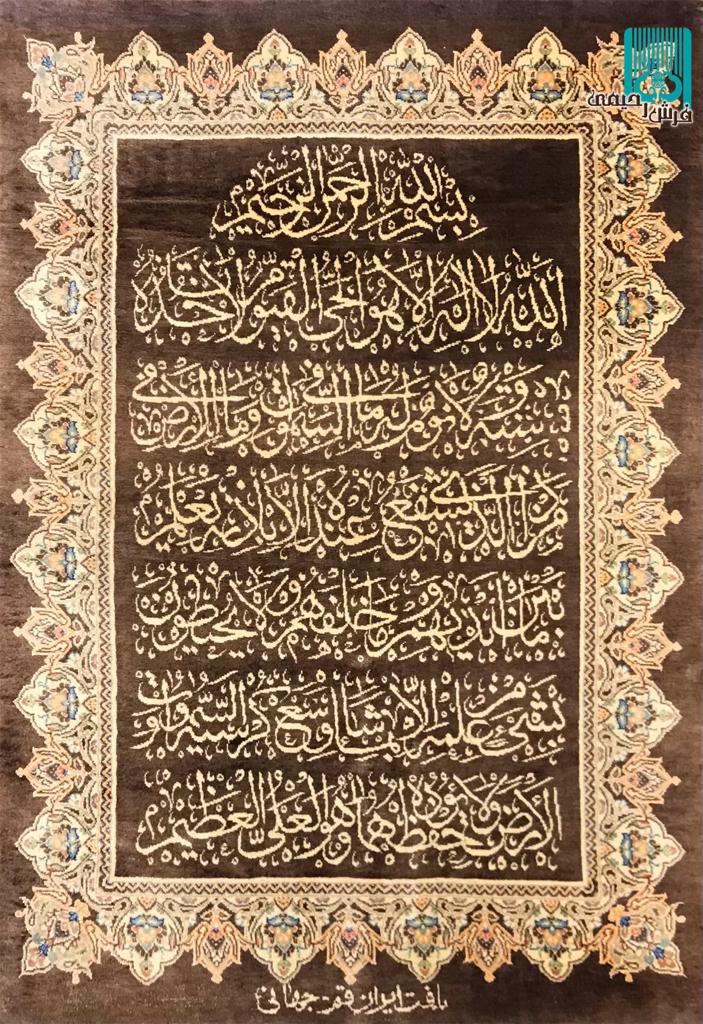 فرش رحیمی
بسم الله الرحمن الرحيم
الله لا اله الا هو الحي القيوم لا تاخذه
سنة ولا نوم له ما في السموات وما في الأرض
من ذا الذي يشفع عنده الا باذنه يعلم
ما بين ايديهم وما خلفهم ولا يحيطون
بشيء من علمه الا بما شاء وسع كرسيه السموات و
الأرض ولا يؤده حفظهما وهو العلي العظيم
بافت ایران قم - جهانی